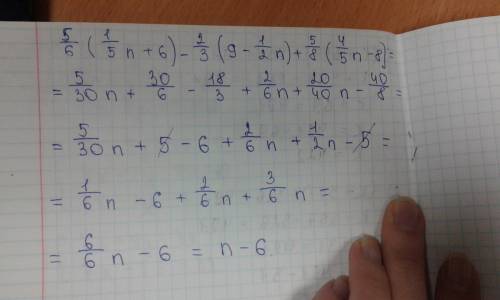 5/6 (1/5 n + 6) - 2/3 (9 - 1/2 n) + 5/8 (4/5 n - 8) =
= 5/30 n + 30/6 - 18/3 + 2/6 n + 20/40 n - 40/8 =
= 5/30 n + 5 - 6 + 2/6 n + 1/2 n - 5 =
= 1/6 n - 6 + 2/6 n + 3/6 n =
= 6/6 n - 6 = n - 6.